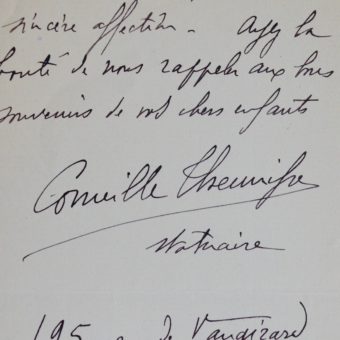 sincère affection. Ayez la
bonté de nous rappeler aux bons
souvenirs de vos chers enfants
Corneille Theunissen
statuaire
195 r. de Vaugirard